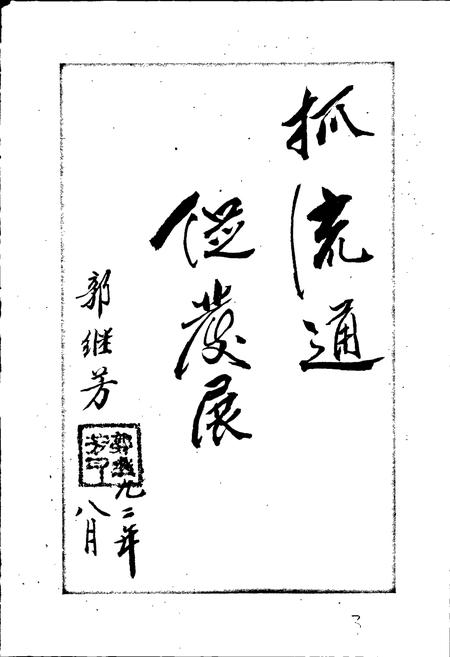 抓流通
促發展
郭继芳
郭继芳印
九二年
八月
3